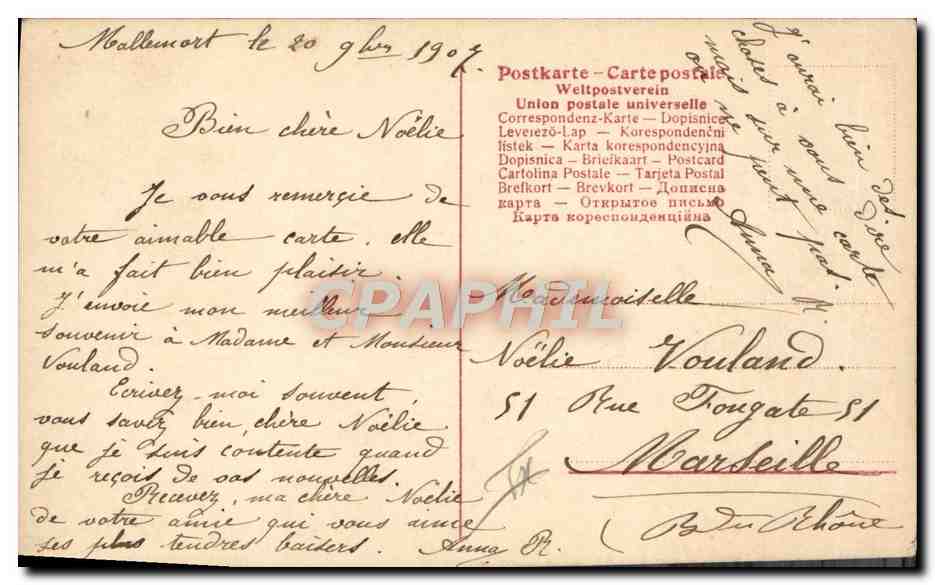 Mallemort le 20 9bre 1907.
Bien chère Noëlie
Je vous remerçie de
votre aimable carte. elle
m'a fait bien plaisir.
J'envoie mon meilleur
souvenir à Madame et Monsieur
Vouland.
Ecrivez-moi souvent,
vous savez bien, chère Noëlie
que je suis contente quand
je reçois de vos nouvelles.
Recevez, ma chère Noëlie
de votre amie qui vous aime
ses plus tendres baisers. Anna R.
J'aurai bien des
choses à vous dire
mais sur une carte
on ne peut pas.
Anna R.
Postkarte – Carte postale
Weltpostverein
Union postale universelle
Correspondenz-Karte — Dopisnice
Levelező-Lap — Korespondenční
lístek — Karta korespondencyjna
Dopisnica — Briefkaart — Postcard
Cartolina Postale — Tarjeta Postal
Brefkort — Brevkort — Дописна
карта — Открытое письмо
Карта кореспонденційна
CPAPHIL
Mademoiselle
Noëlie Vouland.
51 Rue Fongate 51
Marseille
(B du Rhône